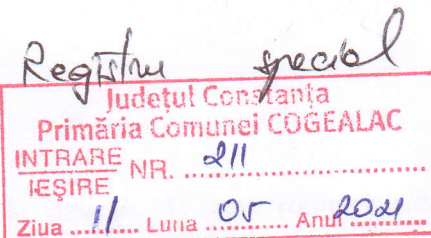 Registru special
Județul Constanța
Primăria Comunei COGEALAC
INTRARE
IEȘIRE NR. 211
Ziua 11 Luna 05 Anul 2021